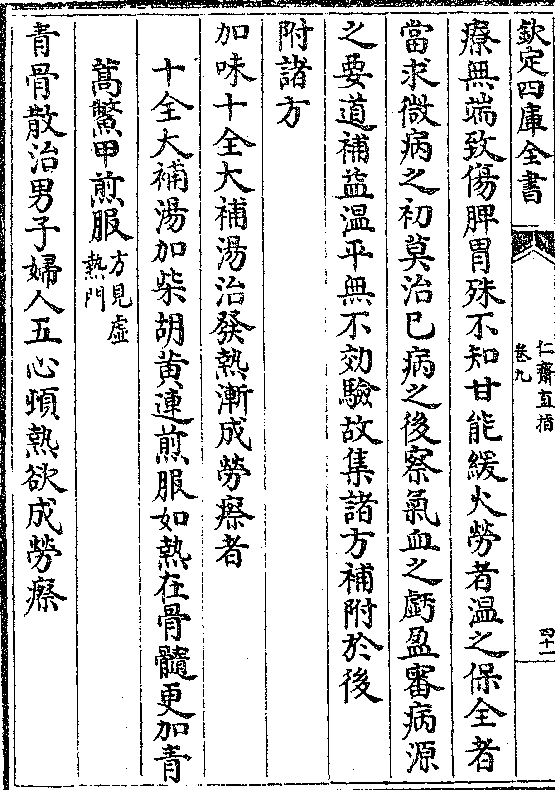 欽定四庫全書
仁齋直指
卷九
四十一
療無端致傷脾胃殊不知甘能緩火勞者温之保全者
當求微病之初莫治已病之後察氣血之虧盈審病源
之要道補益温平無不効驗故集諸方補附於後
附諸方
加味十全大補湯治發熱漸成勞瘵者
十全大補湯加柴胡黄連煎服如熱在骨髓更加青
蒿鱉甲煎服方見虚熱門
青骨散治男子婦人五心煩熱欲成勞瘵